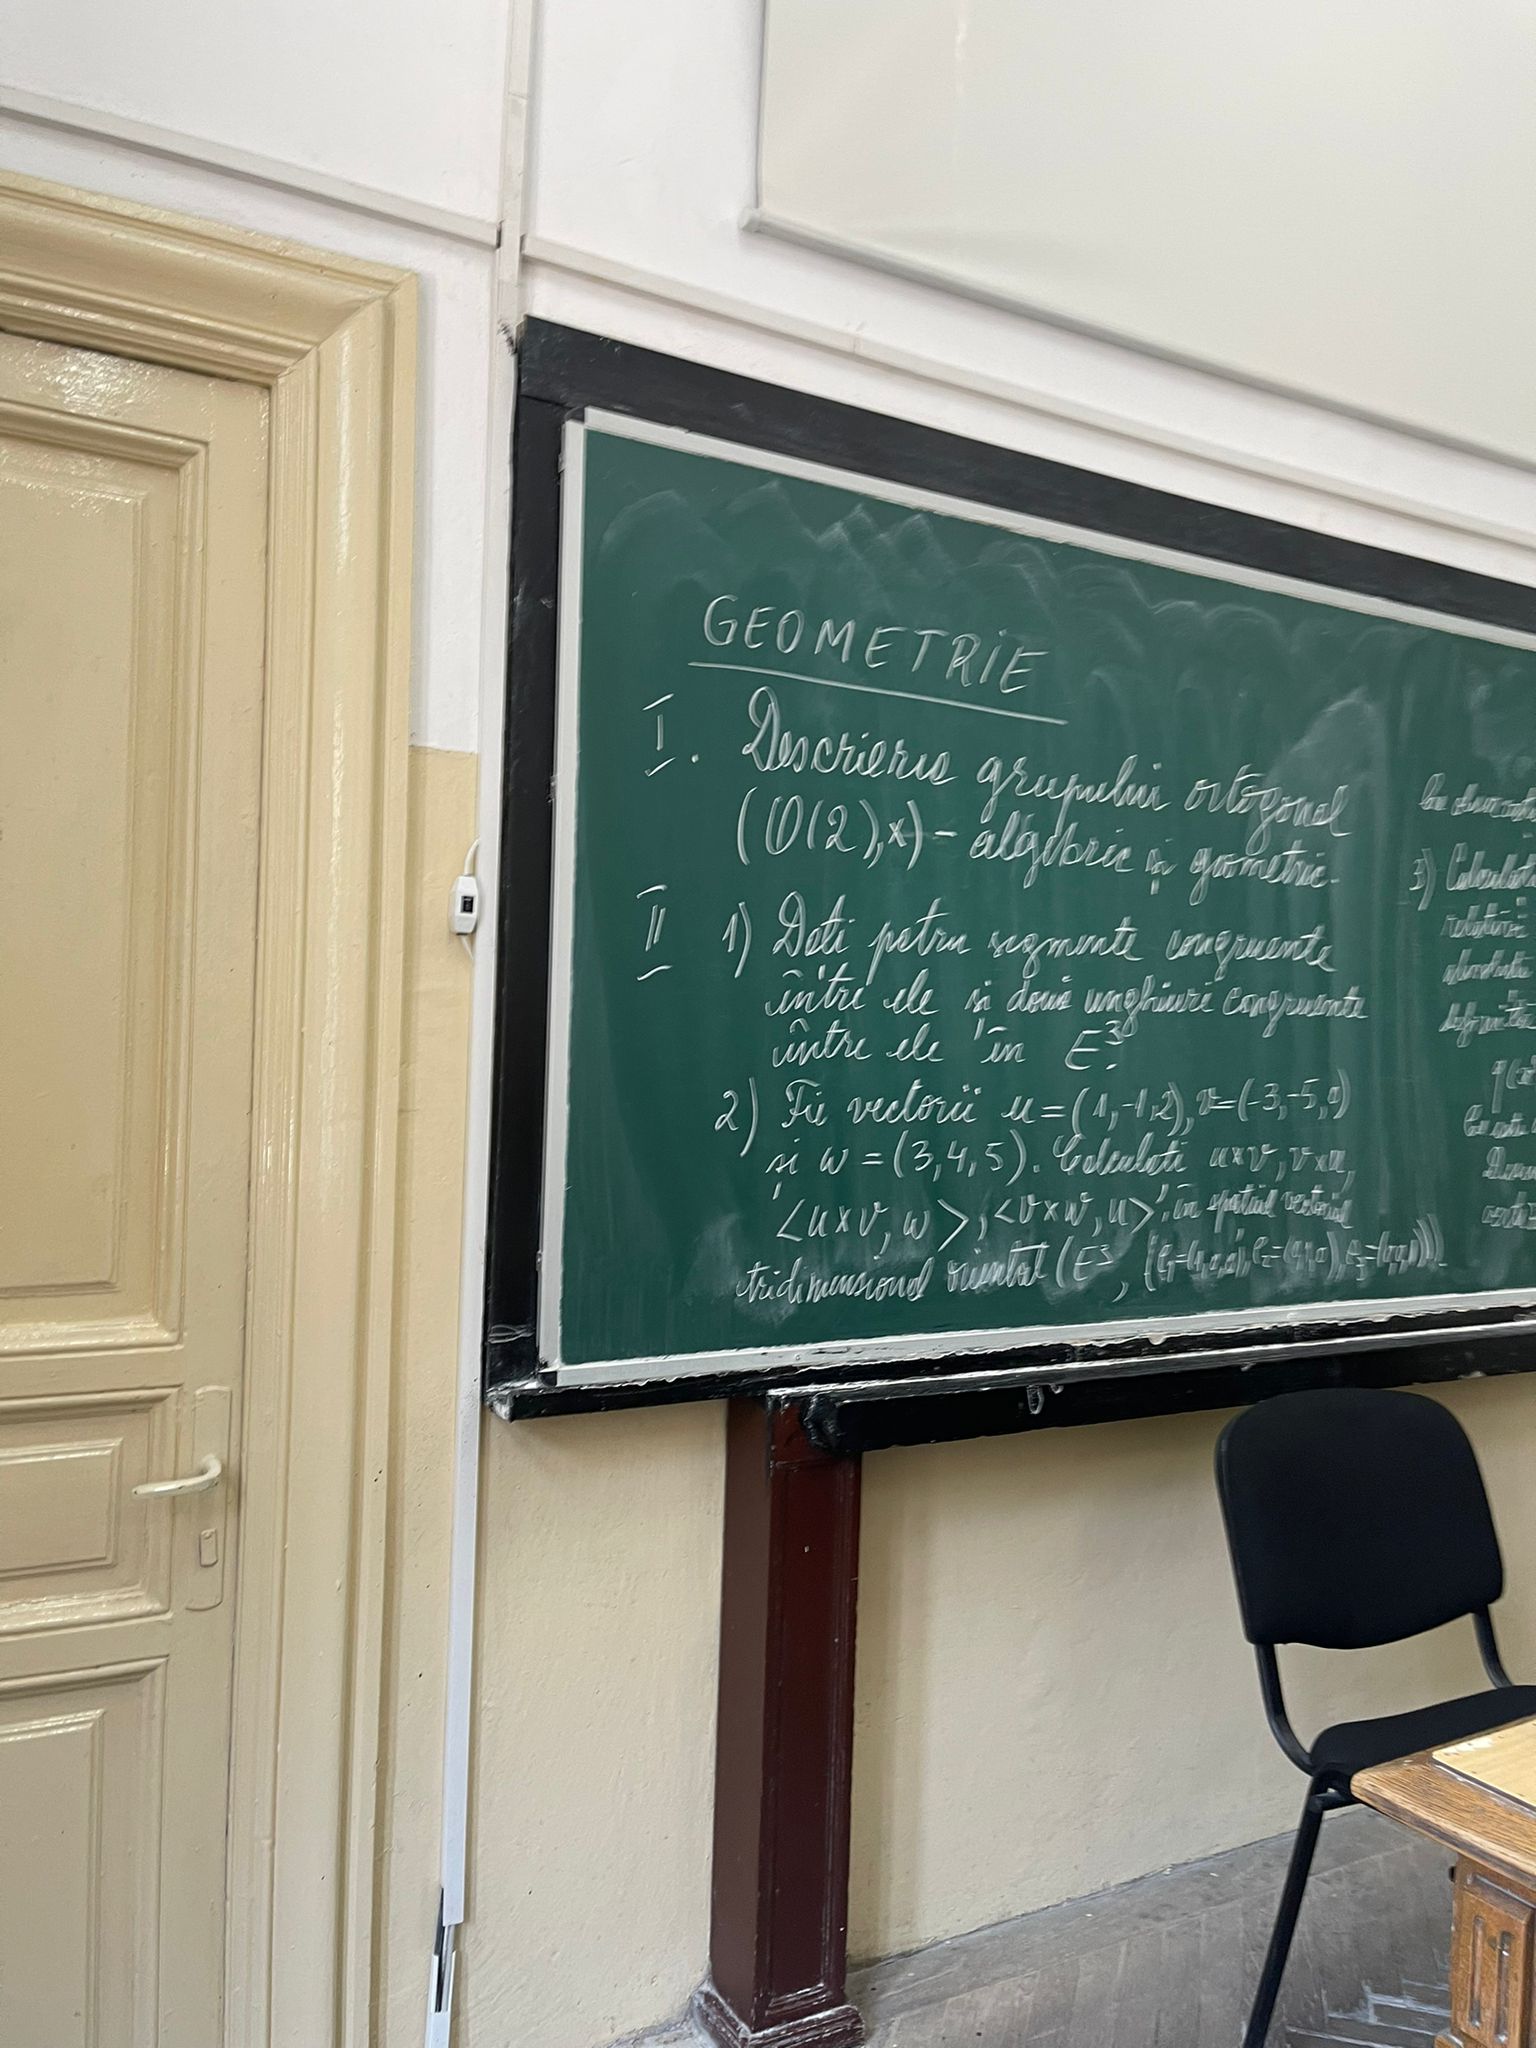 GEOMETRIE
I. Descrierea grupului ortogonal
(O(2),×) - algebric și geometric.
II 1) Dați patru segmente congruente
între ele și două unghiuri congruente
între ele în E³.
2) Fie vectorii u=(1,-1,2), v=(-3,-5,
și w=(3,4,5). Calculați u×v, v×u,
<u×v, w>, <v×w, u>, în spațiul vectorial
tridimensional orientat (E³,
3) Calculați